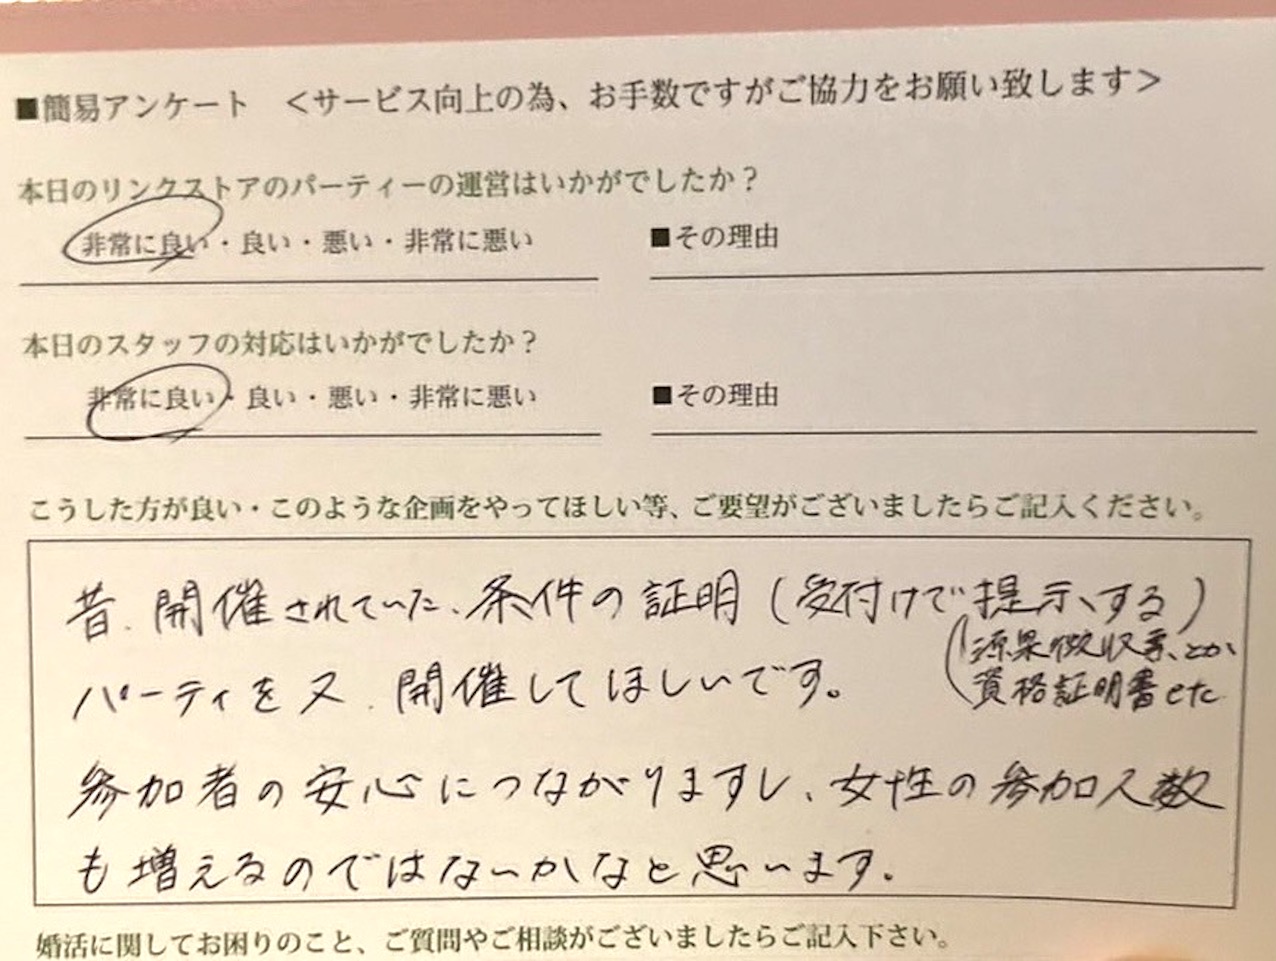 ■簡易アンケート ＜サービス向上の為、お手数ですがご協力をお願い致します＞
本日のリンクストアのパーティーの運営はいかがでしたか？
非常に良い・良い・悪い・非常に悪い ■その理由
本日のスタッフの対応はいかがでしたか？
非常に良い・良い・悪い・非常に悪い ■その理由
こうした方が良い・このような企画をやってほしい等、ご要望がございましたらご記入ください。
昔、開催されていた、条件の証明(受付けで提示する)
(源泉徴収票、とか、
資格証明書etc
パーティを又、開催してほしいです。
参加者の安心につながりますし、女性の参加人数
も増えるのではないかなと思います。
婚活に関してお困りのこと、ご質問やご相談がございましたらご記入下さい。